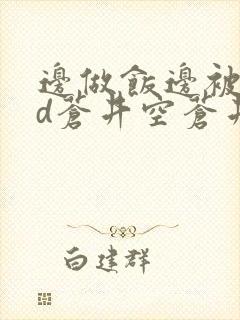 邊做飯邊被
d蒼井空蒼井
白建群